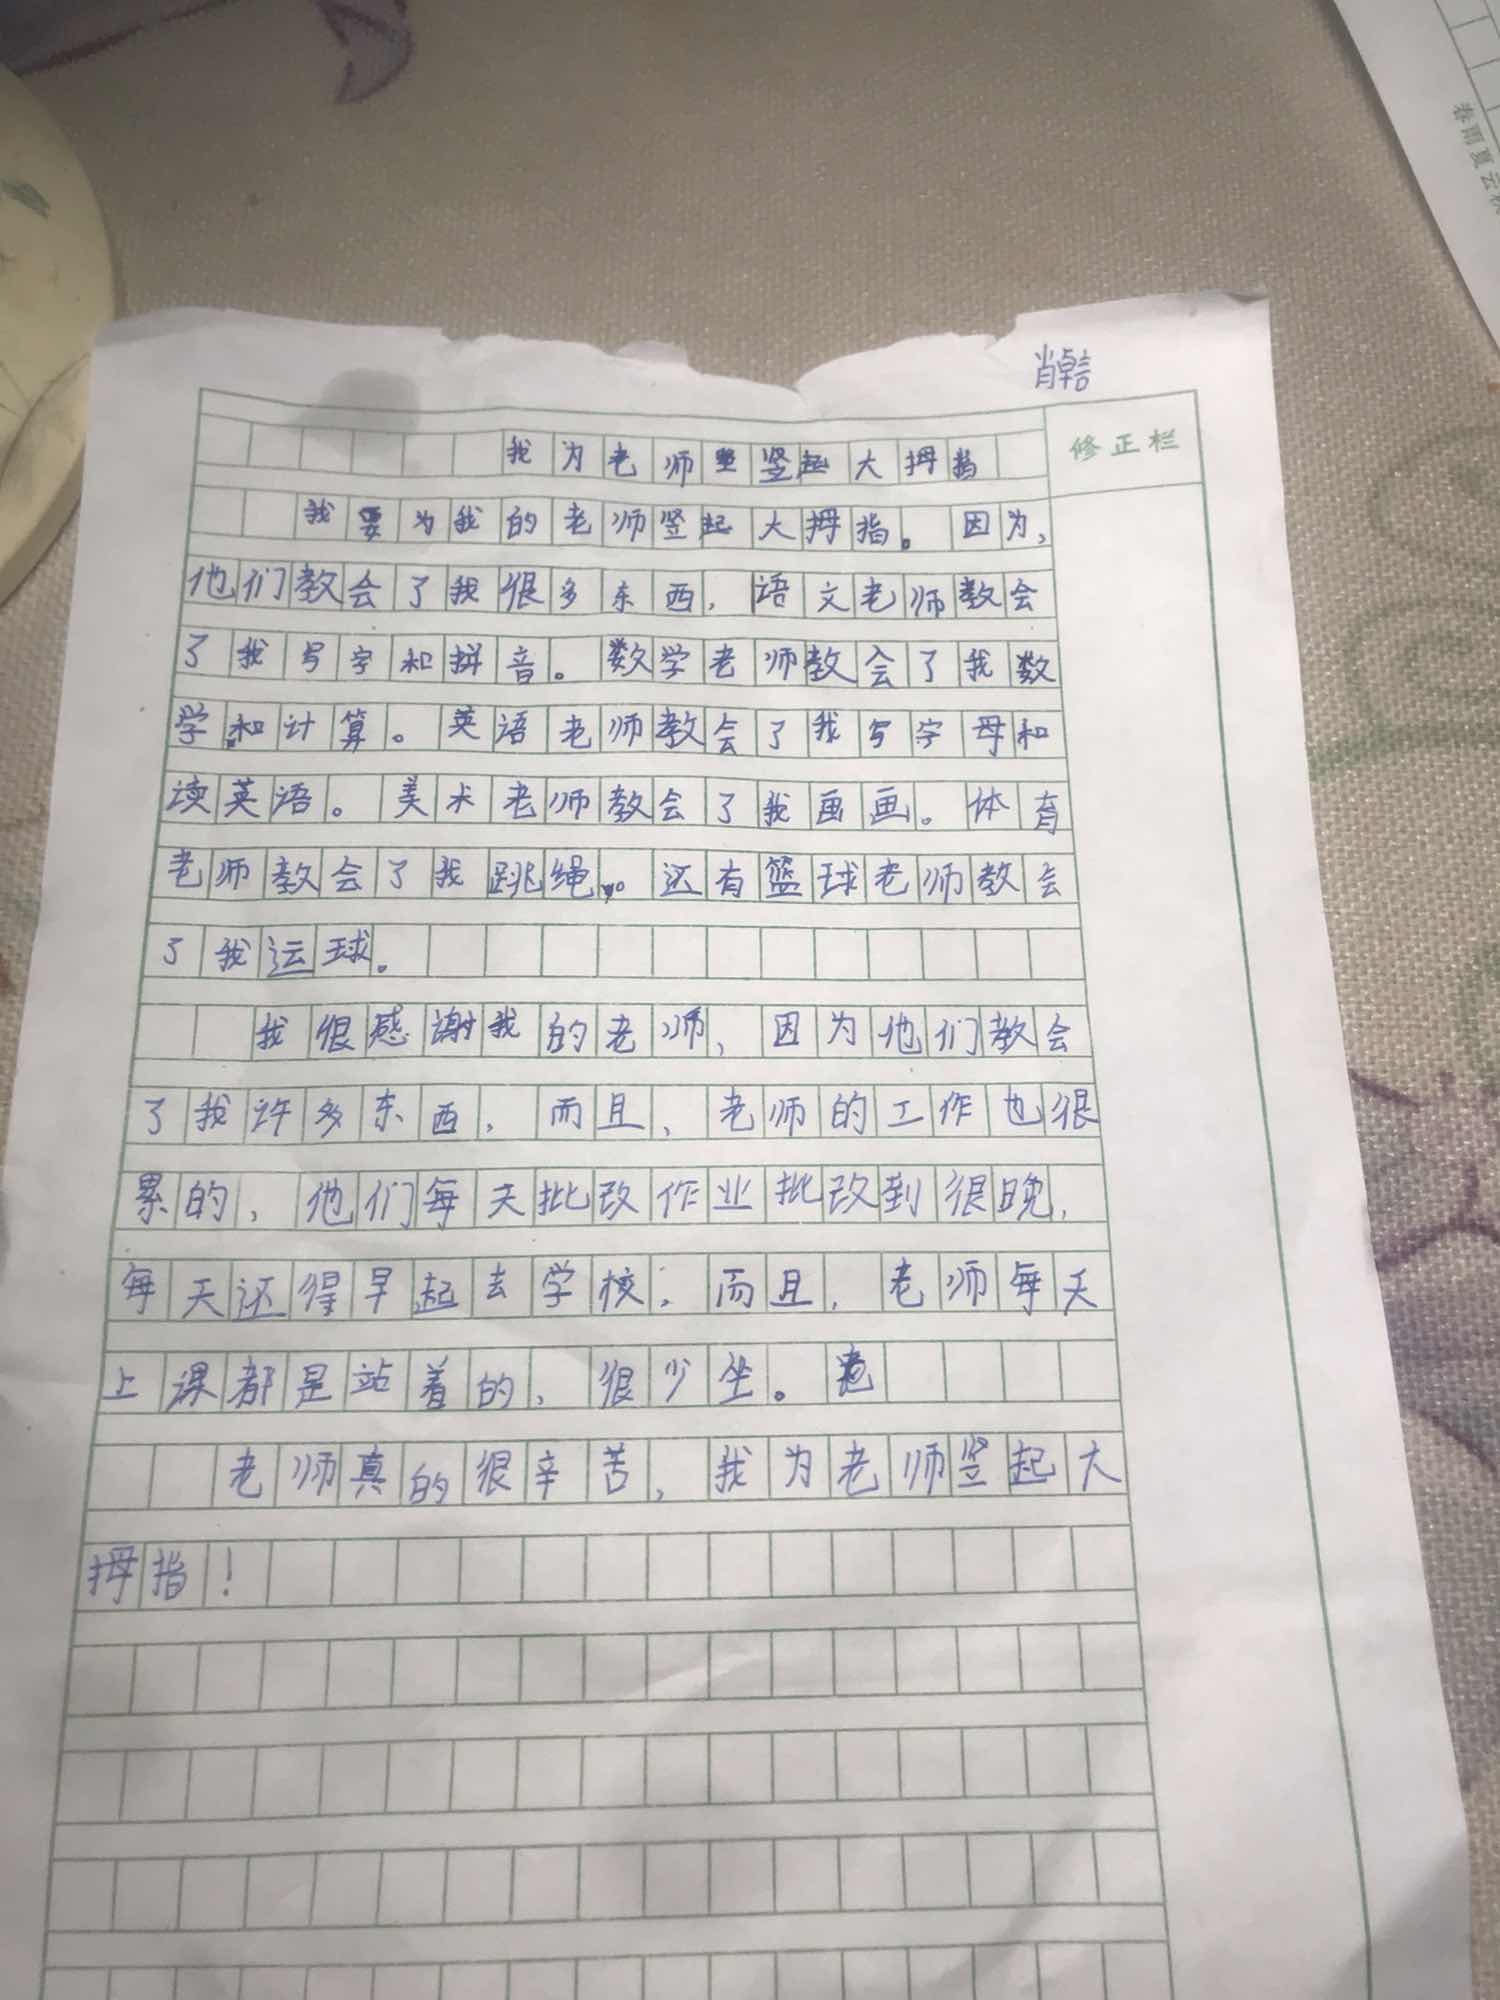 春雨夏云秋
肖卓言
我为老师竖起大拇指
修正栏
我要为我的老师竖起大拇指。因为,
他们教会了我很多东西,语文老师教会
了我写字和拼音。数学老师教会了我数
学和计算。英语老师教会了我写字母和
读英语。美术老师教会了我画画。体育
老师教会了我跳绳。还有篮球老师教会
了我运球。
我很感谢我的老师,因为他们教会
了我许多东西,而且,老师的工作也很
累的,他们每天批改作业批改到很晚,
每天还得早起去学校,而且,老师每天
上课都是站着的,很少坐。
老师真的很辛苦,我为老师竖起大
拇指!